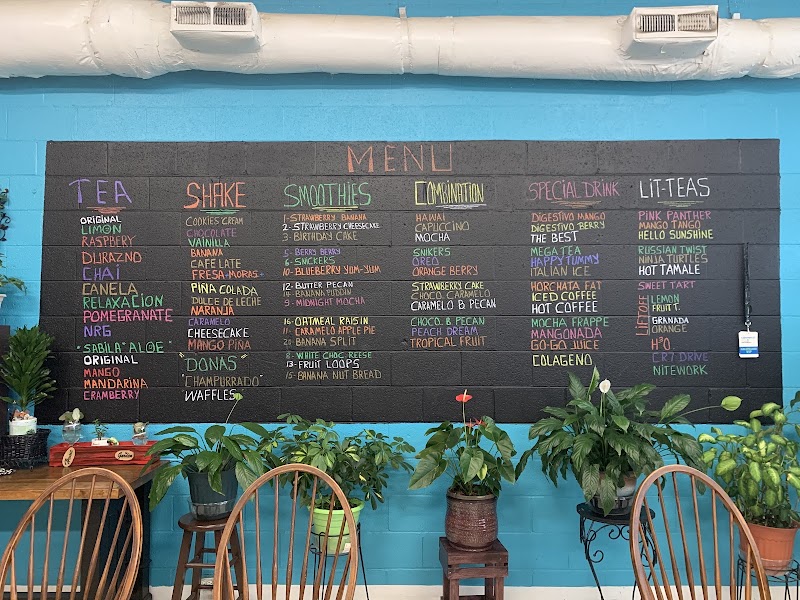 MENU
TEA
ORIGINAL
LIMÓN
RASPBERY
DURAZNO
CHAI
CANELA
RELAXACIÓN
POMEGRANATE
NRG
"SABILA" ALOE"
ORIGINAL
MANGO
MANDARINA
CRAMBERRY
SHAKE
COOKIES CREAM
CHOCOLATE
VAINILLA
BANANA
CAFE LATE
FRESA-MORAS
PIÑA COLADA
DULCE DE LECHE
NARANJA
CARAMELO
CHEESCAKE
MANGO PIÑA
"DONAS"
"CHAMPURRADO"
WAFFLES
SMOOTHIES
1-STRAWBERRY BANANA
2-STRAWBERRY CHEESECAKE
3-BIRTHDAY CAKE
5-BERRY BERRY
6-SNICKERS
10-BLUEBERRY YUM-YUM
12-BUTTER PECAN
14-BANANA PUDDIN
9-MIDNIGHT MOCHA
16-OATMEAL RAISIN
11-CARAMELO APPLE PIE
20-BANANA SPLIT
8-WHITE CHOC. REESE
13-FRUIT LOOPS
15-BANANA NUT BREAD
COMBINATION
HAWAI
CAPUCCINO
MOCHA
SNIKERS
OREO
ORANGE BERRY
STRAWBERRY CAKE
CHOCO. CARAMELO
CARAMELO B. PECAN
CHOCO. B. PECAN
PEACH DREAM
TROPICAL FRUIT
SPECIAL DRINK
DIGESTIVO MANGO
DIGESTIVO BERRY
THE BEST
MEGA TEA
HAPPY TUMMY
ITALIAN ICE
HORCHATA FAT
ICED COFFEE
HOT COFFEE
MOCHA FRAPPE
MANGONADA
GO-GO JUICE
COLAGENO
LIT-TEAS
PINK PANTHER
MANGO TANGO
HELLO SUNSHINE
RUSSIAN TWIST
NINJA TURTLES
HOT TAMALE
SWEET TART
LIFTOFF
LEMON
FRUIT T.
GRANADA
ORANGE
H³O
CR7 DRIVE
NITEWORK